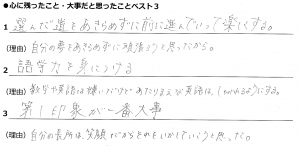 ●心に残ったこと・大事だと思ったことベスト3
1 選んだ道をあきらめずに前に進んでいって楽しくする。
(理由) 自分の夢をあきらめずに頑張ろうと思ったから。
2 語学力を身につける
(理由) 数学や英語は嫌いだけどあたりまえな英語は、しゃべれるようにする。
3 第1印象が一番大事
(理由) 自分の長所は、笑顔だからそれをいかしていこうと思った。